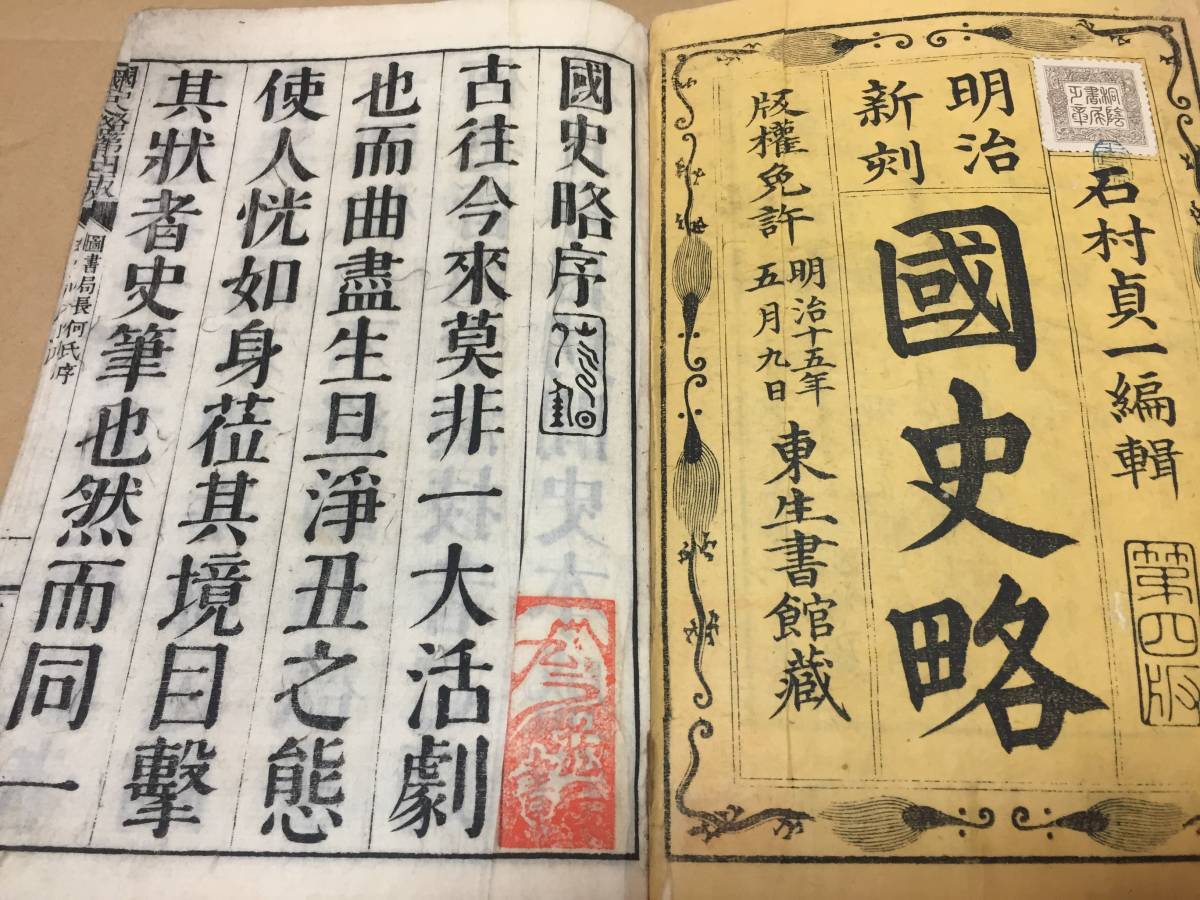 石村貞一編輯
第四版
明治
新刻
國史略
版權免許 明治十五年
五月九日
東生書館藏
國史略序
古往今來莫非一大活劇
也而曲盡生旦淨丑之態
使人恍如身莅其境目擊
其狀者史筆也然而同一
國史略第四版
圖書局長何氏序